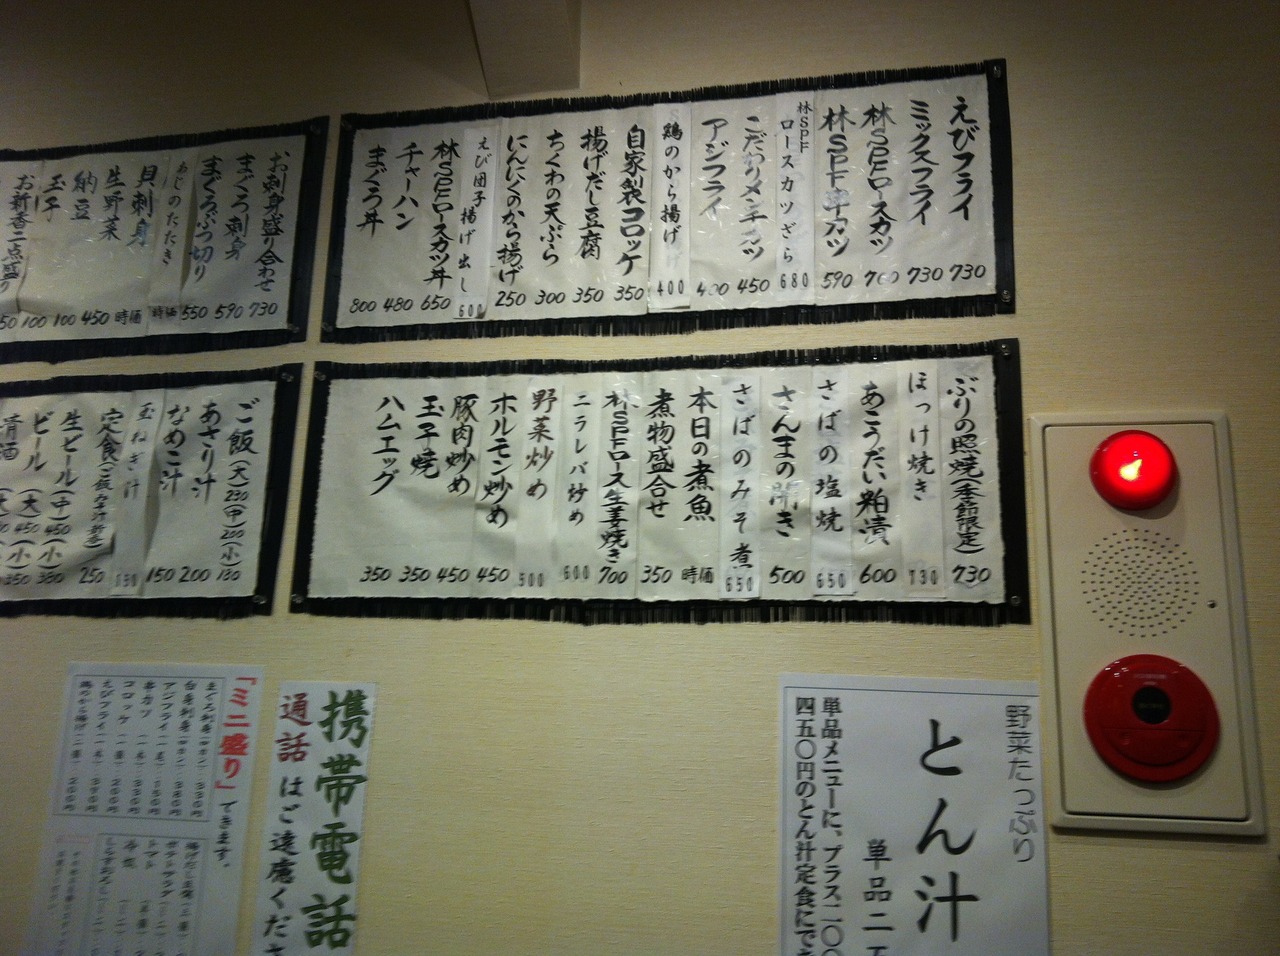 えびフライ 730
ミックスフライ 730
林SPFロースカツ 760
林SPF串カツ 590
林SPFロースカツざら 680
こだわりメンチカツ 450
アジフライ 400
鶏のから揚げ 400
自家製コロッケ 350
揚げだし豆腐 350
ちくわの天ぷら 300
にんにくのから揚げ 250
えび団子揚げ出し 600
林SPFロースカツ丼 650
チャーハン 480
まぐろ丼 800
お刺身盛り合わせ 730
まぐろ刺身 590
まぐろぶつ切り 550
あじのたたき 時価
貝刺身 時価
生野菜 450
納豆 100
玉子 100
お新香二点盛り 50
ぶりの照焼(季節限定) 730
ほっけ焼き 730
あこうだい粕漬 600
さばの塩焼 650
さんまの開き 500
さばのみそ煮 650
本日の煮魚 時価
煮物盛合せ 350
林SPFロース生姜焼き 700
ニラレバ炒め 600
野菜炒め 500
ホルモン炒め 450
豚肉炒め 450
玉子焼 350
ハムエッグ 350
ご飯(大)230(中)200(小)180
あさり汁 200
なめこ汁 150
玉ねぎ汁
定食 250
生ビール(中)450(小)380
ビール(大)450(小)350
清酒
野菜たっぷり
とん汁
単品二
単品メニューに、プラス二〇〇
四五〇円のとん汁定食にでき
携帯電話
通話はご遠慮くださ
「ミニ盛り」できます。
アジフライ
串カツ
コロッケ
えびフライ